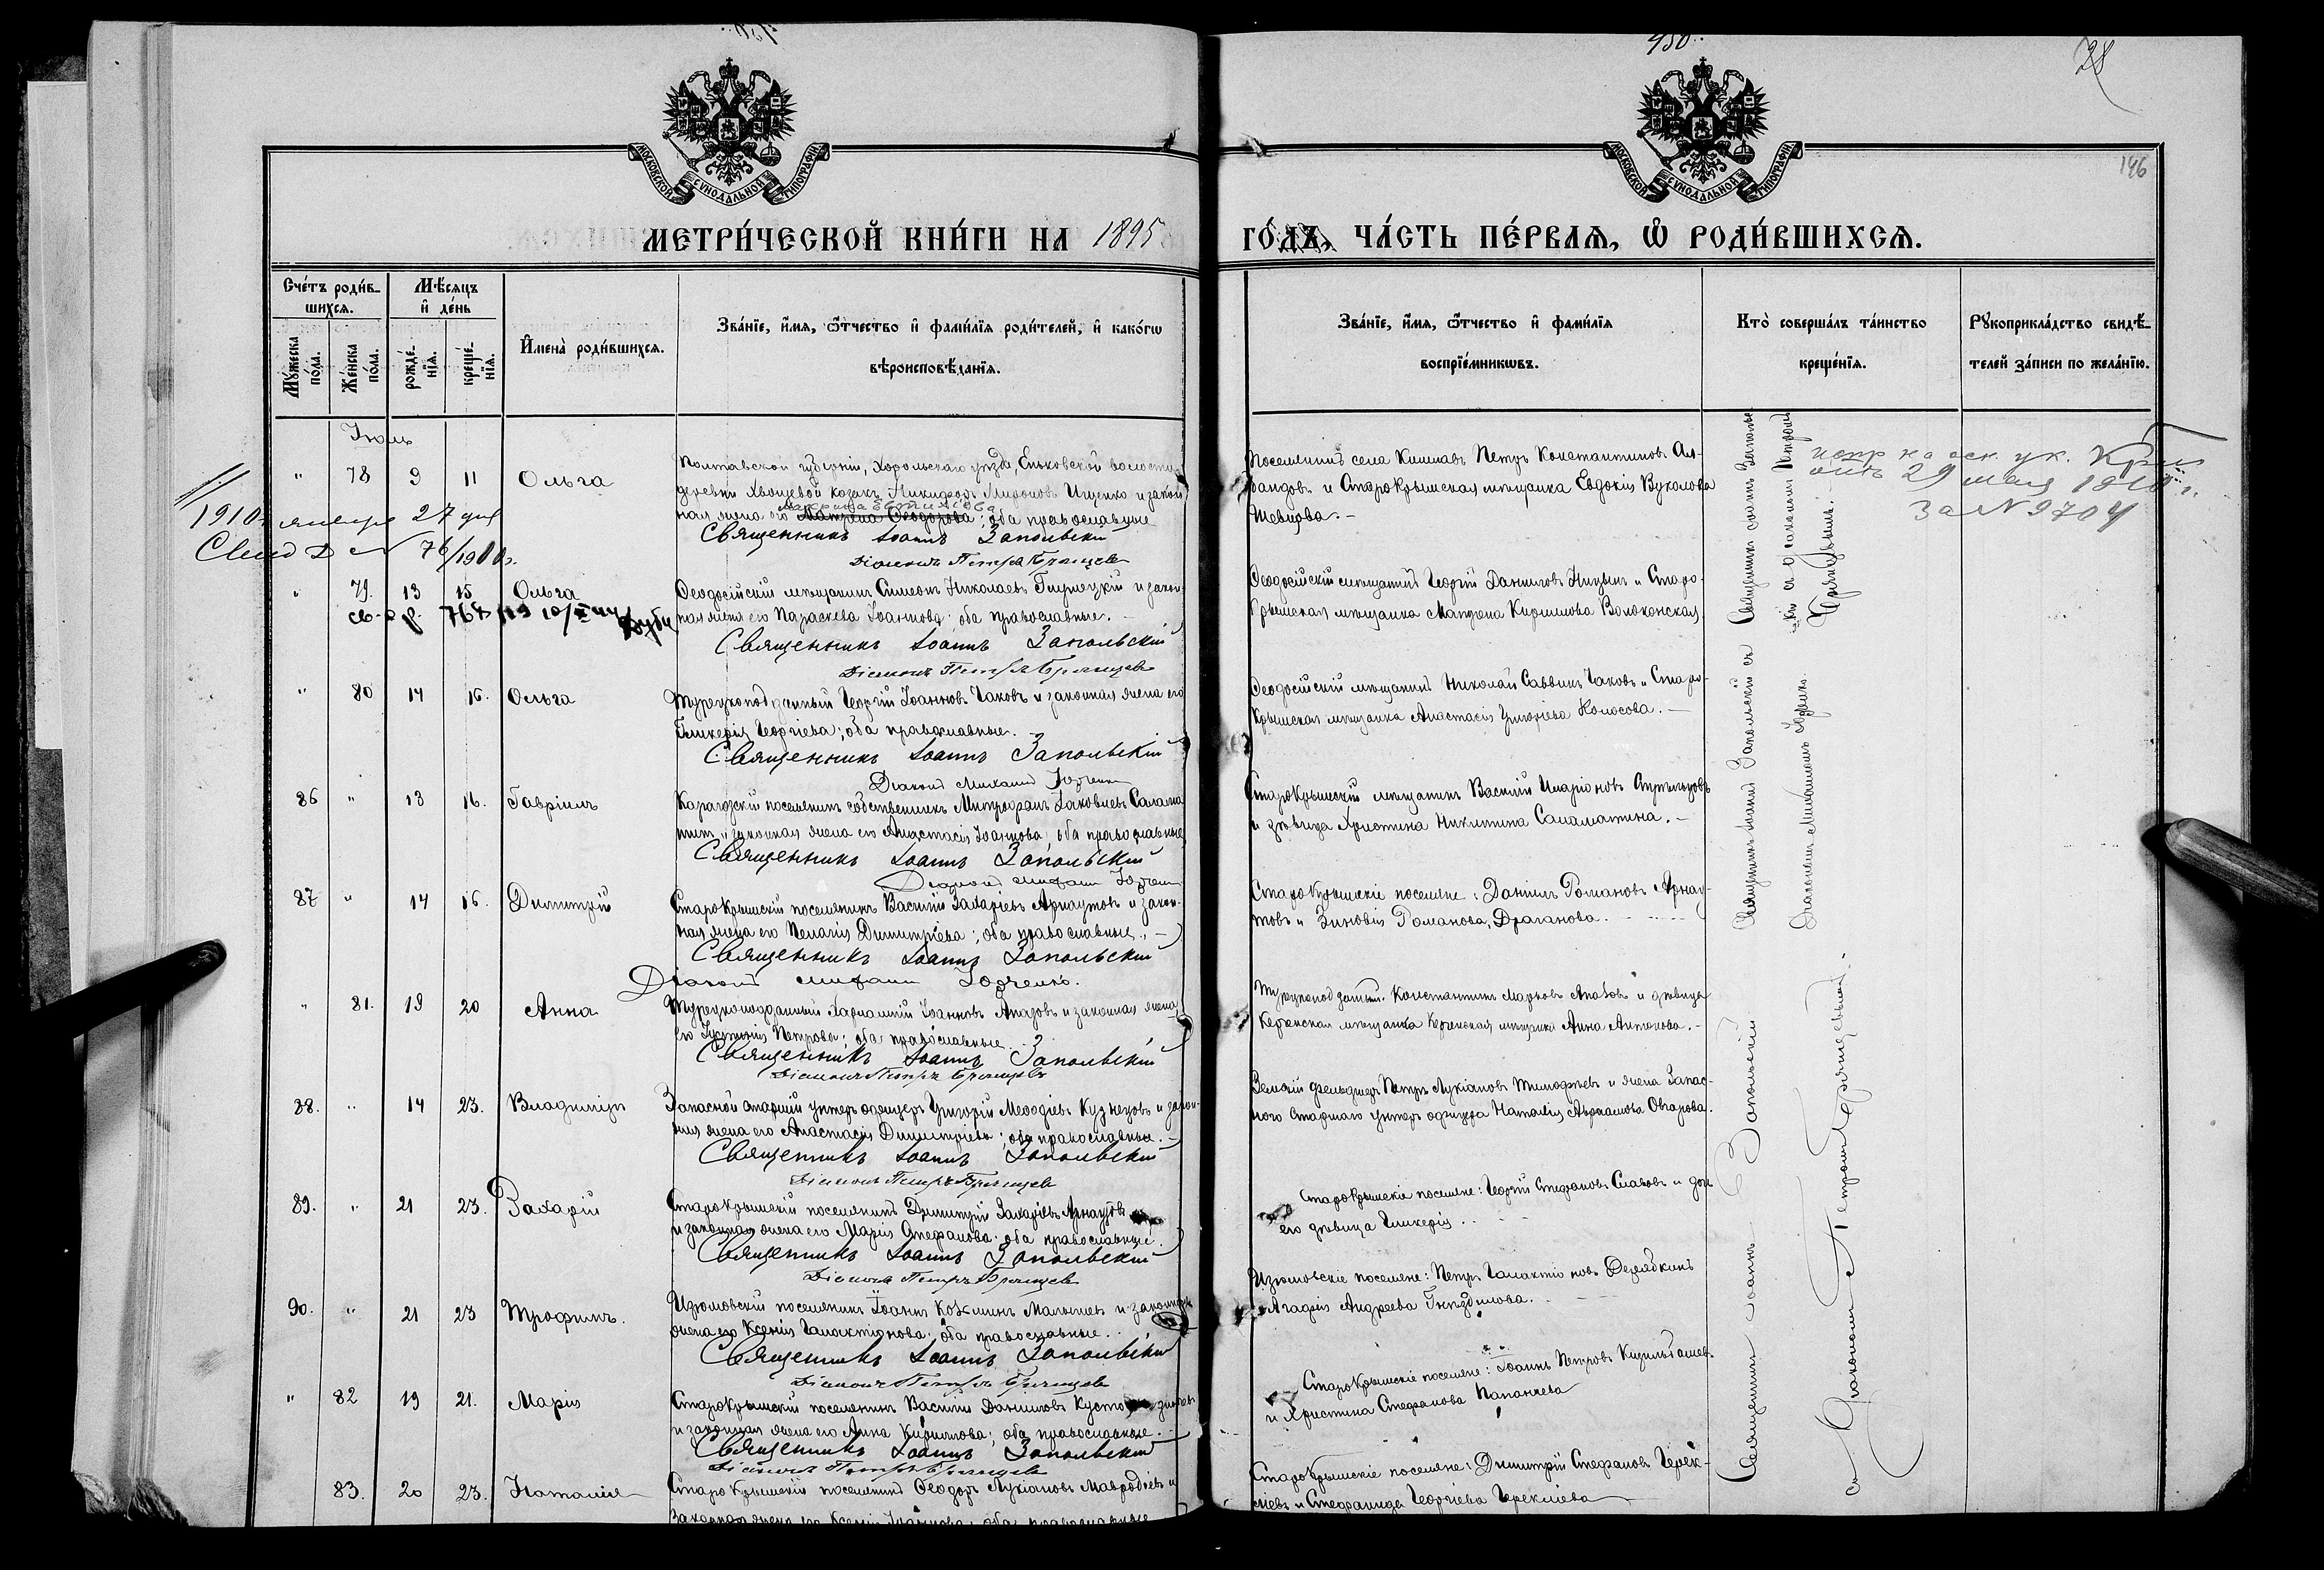 450.
28
146
МОСКОВСКОЙ СѴНОДАЛЬНОЙ ТИПОГРАФІИ
МОСКОВСКОЙ СѴНОДАЛЬНОЙ ТИПОГРАФІИ
МЕТРИ́ЧЕСКОЙ КНИ́ГИ НА 1895 ГО́ДЪ, ЧА́СТЬ ПЕ́РВАѦ, Ѡ РОДИ́ВШИХСѦ.
Сче́тъ роди́в-
шихсѧ.
Мꙋ́жеска по́ла.
Же́нска по́ла.
Мѣ́сѧцъ
и҆ де́нь
рожде́-нїѧ.
креще́-нїѧ.
И҆мена̀ роди́вшихсѧ.
Зва́нїе, и҆́мѧ, ѻ҆́тчество и҆ фами́лїѧ роди́телей, и҆ како́гѡ
вѣроисповѣ́данїѧ.
Зва́нїе, и҆́мѧ, ѻ҆́тчество и҆ фами́лїѧ
воспрїе́мникѡвъ.
Кто̀ соверша́лъ та́инство
креще́нїѧ.
Рꙋкоприкла́дство свидѣ́-
телей за́писи по жела́нїю.
Іюль
" 78 9 11 Ольга
Полтавской губерніи, Хорольскаго уѣзда, Еньковской волости
деревни Хвощевой козакъ Никифоръ Мироновъ Ищенко и закон-
ная жена его Матрена Ѳеодорова; оба православные
Священникъ Іоаннъ Запольскій
Діаконъ Петръ Брянцевъ
Поселянинъ села Кишлавъ Петръ Константиновъ
и Старокрымская мѣщанка Евдокія Вуколова
1910 января 27 дня
76/1910
29 мая 1910 г.
За № 9704
" 79. 13 15 Ольга
Ѳеодосійскій мѣщанинъ Симеонъ Николаевъ и закон-
ная жена его Параскева Іоаннова; оба православные.
Священникъ Іоаннъ Запольскій
Діаконъ Петръ Брянцевъ
Ѳеодосійскій мѣщанинъ Георгій Даниловъ и Старо-
крымская мѣщанка Матрена Кириллова Волоконская
" 80 14 16. Ольга
Турецкоподданный Георгій Іоанновъ Чаковъ и законная жена его
Гликерія Георгіева; оба православные.
Священникъ Іоаннъ Запольскій
Діаконъ Михаилъ Юрченко
Ѳеодосійскій мѣщанинъ Николай Саввинъ Чаковъ и Старо-
крымская мѣщанка Анастасія Григоріева Колосова. —
86 " 13 16. Гавріилъ
Карагозскій поселянинъ собственникъ Митрофанъ Іаковлевъ Салама-
тинъ и законная жена его Анастасія Іоаннова; оба православные
Священникъ Іоаннъ Запольскій
Діаконъ Михаилъ Юрченко
Старокрымскій мѣщанинъ Василій Иларіоновъ
и дѣвица Христина Никитина Саламатина. —
87 " 14 16. Димитрій
Старокрымскій поселянинъ Василій Захаріевъ Арнаутовъ и закон-
ная жена его Пелагія Димитріева; оба православные. —
Священникъ Іоаннъ Запольскій
Діаконъ Михаилъ Юрченко.
Старокрымскіе поселяне: Даніилъ Романовъ Арнау-
товъ и Зиновія Романова Драганова.
" 81. 19 20 Анна
Турецкоподданный Харлампій Іоанновъ Апазовъ и законная жена
его Іустинія Петрова; оба православные.
Священникъ Іоаннъ Запольскій
Діаконъ Петръ Брянцевъ
Турецкоподдан. Константинъ Марковъ Апазовъ и дѣвица
Керченская мѣщанка Анна Антонова. —
88. " 14 23. Владиміръ
Запасной старшій унтеръ офицеръ Григорій Меѳодіевъ Кузнецовъ и закон-
ная жена его Анастасія Димитріева; оба православные. —
Священникъ Іоаннъ Запольскій
Діаконъ Петръ Брянцевъ
Земскій фельдшеръ Петръ Лукіановъ Тимофѣевъ и жена Запас-
ного старшаго унтеръ офицера Наталія Авраамова Овчарова.
89. " 21 23. Захарій
Старокрымскій поселянинъ Димитрій Захаріевъ Арнаутовъ
и законная жена его Марія Стефанова; оба православные.
Священникъ Іоаннъ Запольскій
Діаконъ Петръ Брянцевъ
Старокрымскіе поселяне: Георгій Стефановъ Славовъ и дочь
его дѣвица Гликерія.
90. " 21 23 Трофимъ.
Изюмовскій поселянинъ Іоаннъ Козминъ Малышевъ и законная
жена его Ксенія Галактіонова; оба православные.
Священникъ Іоаннъ Запольскій
Діаконъ Петръ Брянцевъ
Изюмовскіе поселяне: Петръ Галактіоновъ Дерябкинъ
и Агафія Андреева Гнѣздилова.
" 82 19 21. Марія
Старокрымскій поселянинъ Василій Даниловъ
и законная жена его Анна Кириллова; оба православные.
Священникъ Іоаннъ Запольскій
Діаконъ Петръ Брянцевъ
Старокрымскіе поселяне: Іоаннъ Петровъ Кизильташевъ
и Христина Стефанова Папанчева
83. 20 23. Наталія
Старокрымскій поселянинъ Ѳеодоръ Лукіановъ Мавродіевъ и
Законная жена его Ксенія Іоаннова; оба православные
Старокрымскіе поселяне: Димитрій Стефановъ Герек-
ліевъ и Стефанида Георгіева Гереклiева
Священникъ Іоаннъ Запольскій съ
Діакономъ Михаиломъ Юрченко
Священникъ Іоаннъ Запольскій
съ Діакономъ Петромъ Брянцевымъ.